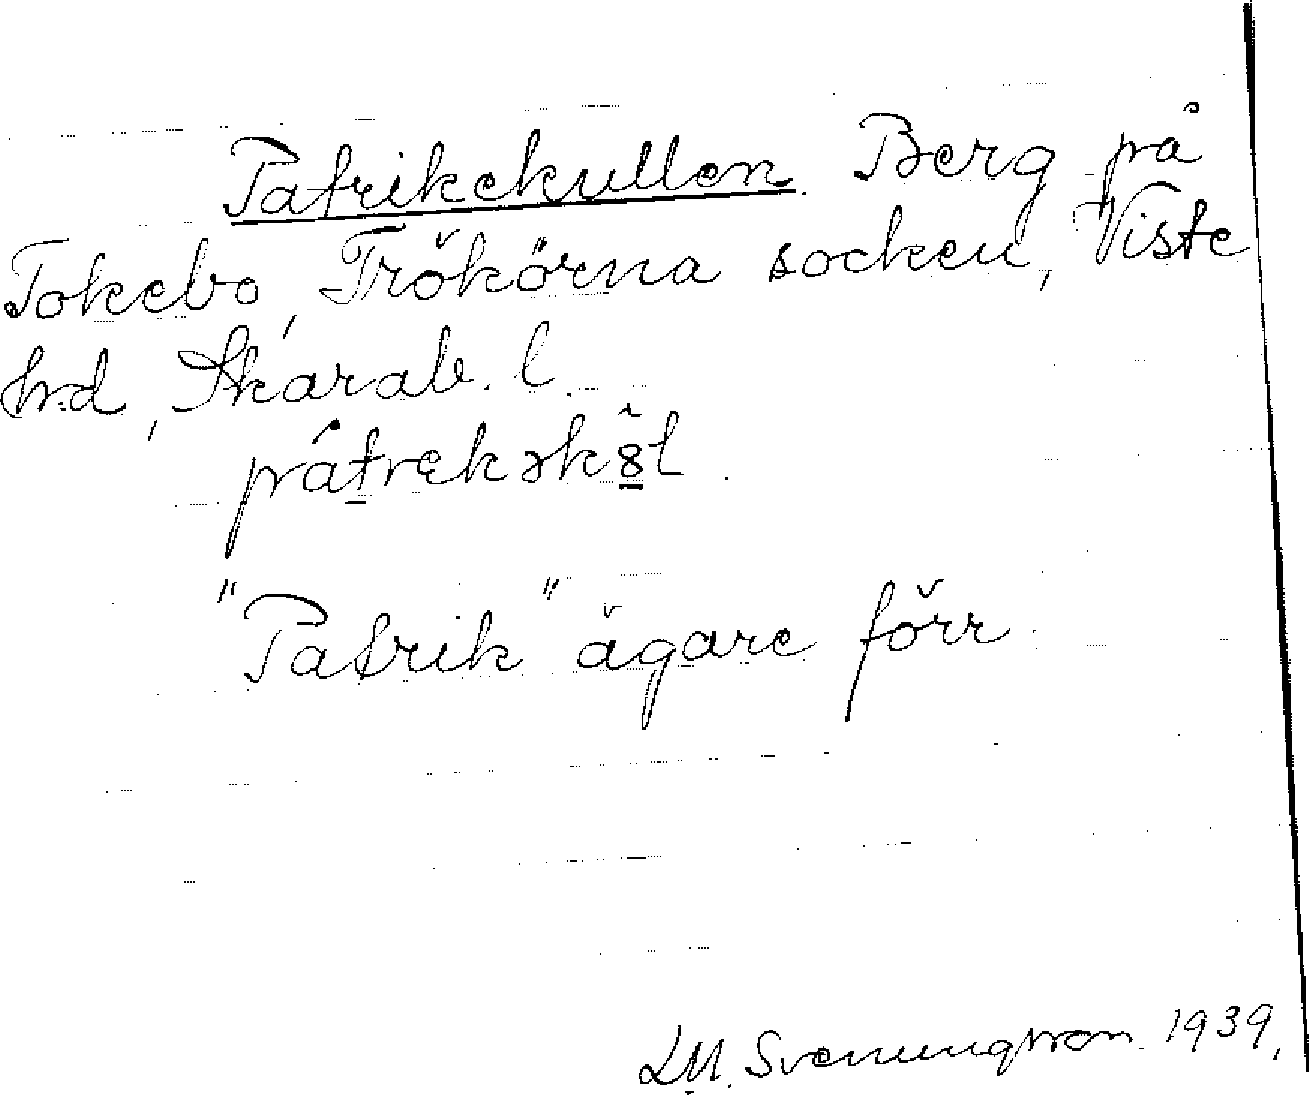 Patrikekullen. Berg på
Tokebo, Trökörna socken, Viste
hd, Skarab. l.
"Patrik" ägare förr.
L.M. Svenungsson 1939.